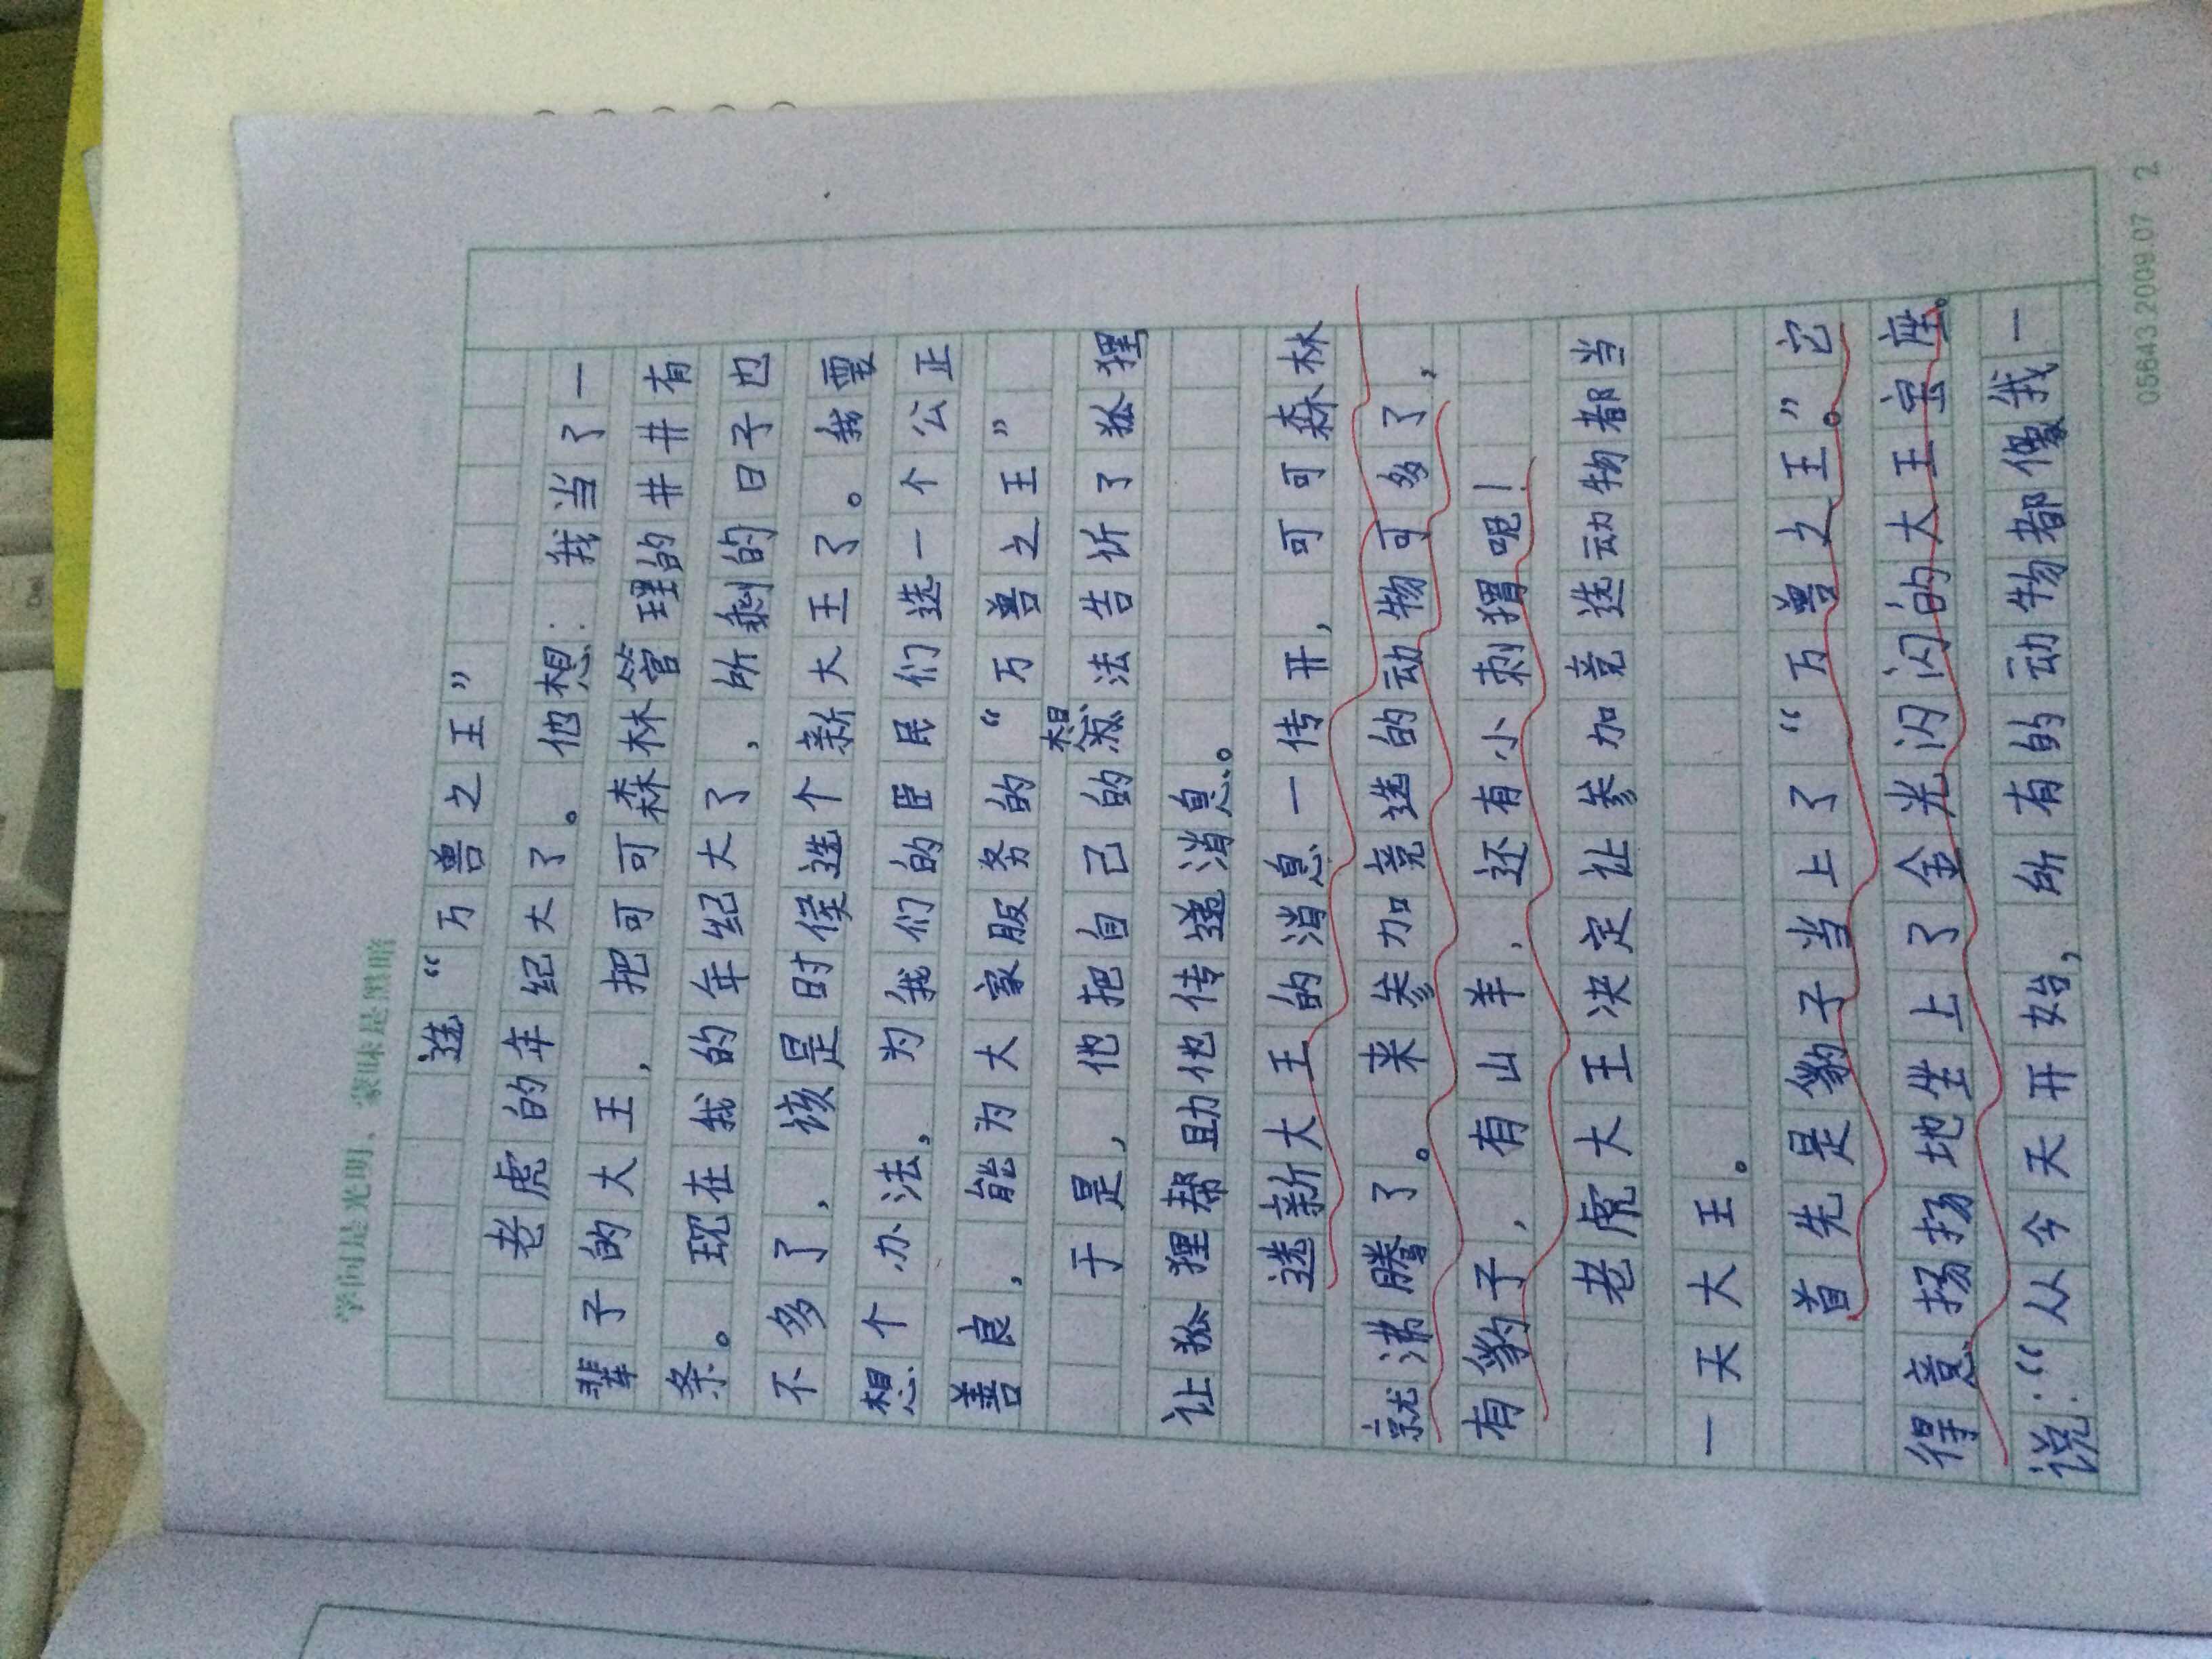 学问是光明，蒙昧是黑暗
选“万兽之王”
老虎的年纪大了。他想：我当了一
辈子的大王，把可可森林管理的井井有
条。现在我的年纪大了，所剩的日子也
不多了，该是时侯选个新大王了。我要
想个办法，为我们的臣民们选一个公正
善良，能为大家服务的“万兽之王”
于是，他把自己的想法告诉了狐狸
让狐狸帮助他传递消息。
选新大王的消息一传开，可可森林
就沸腾了。来参加竞选的动物可多了，
有豹子，有山羊，还有小刺猬呢！
老虎大王决定让参加竞选动物都当
一天大王。
首先是豹子当上了“万兽之王”。它
得意扬扬地坐上了金光闪闪的大王宝座。
说：“从今天开始，所有的动物都像我一
05643 2009.07 2